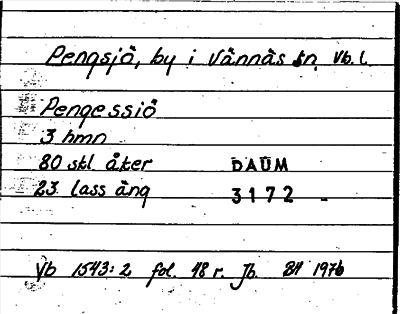 Pengsjö, by i Vännäs sn, Vb. l.
Pengessiö
3 hmn
80 skl åker DAUM
23 lass äng 3172 -
Vb 1543:2 fol. 18 r. Jb. BH 1976